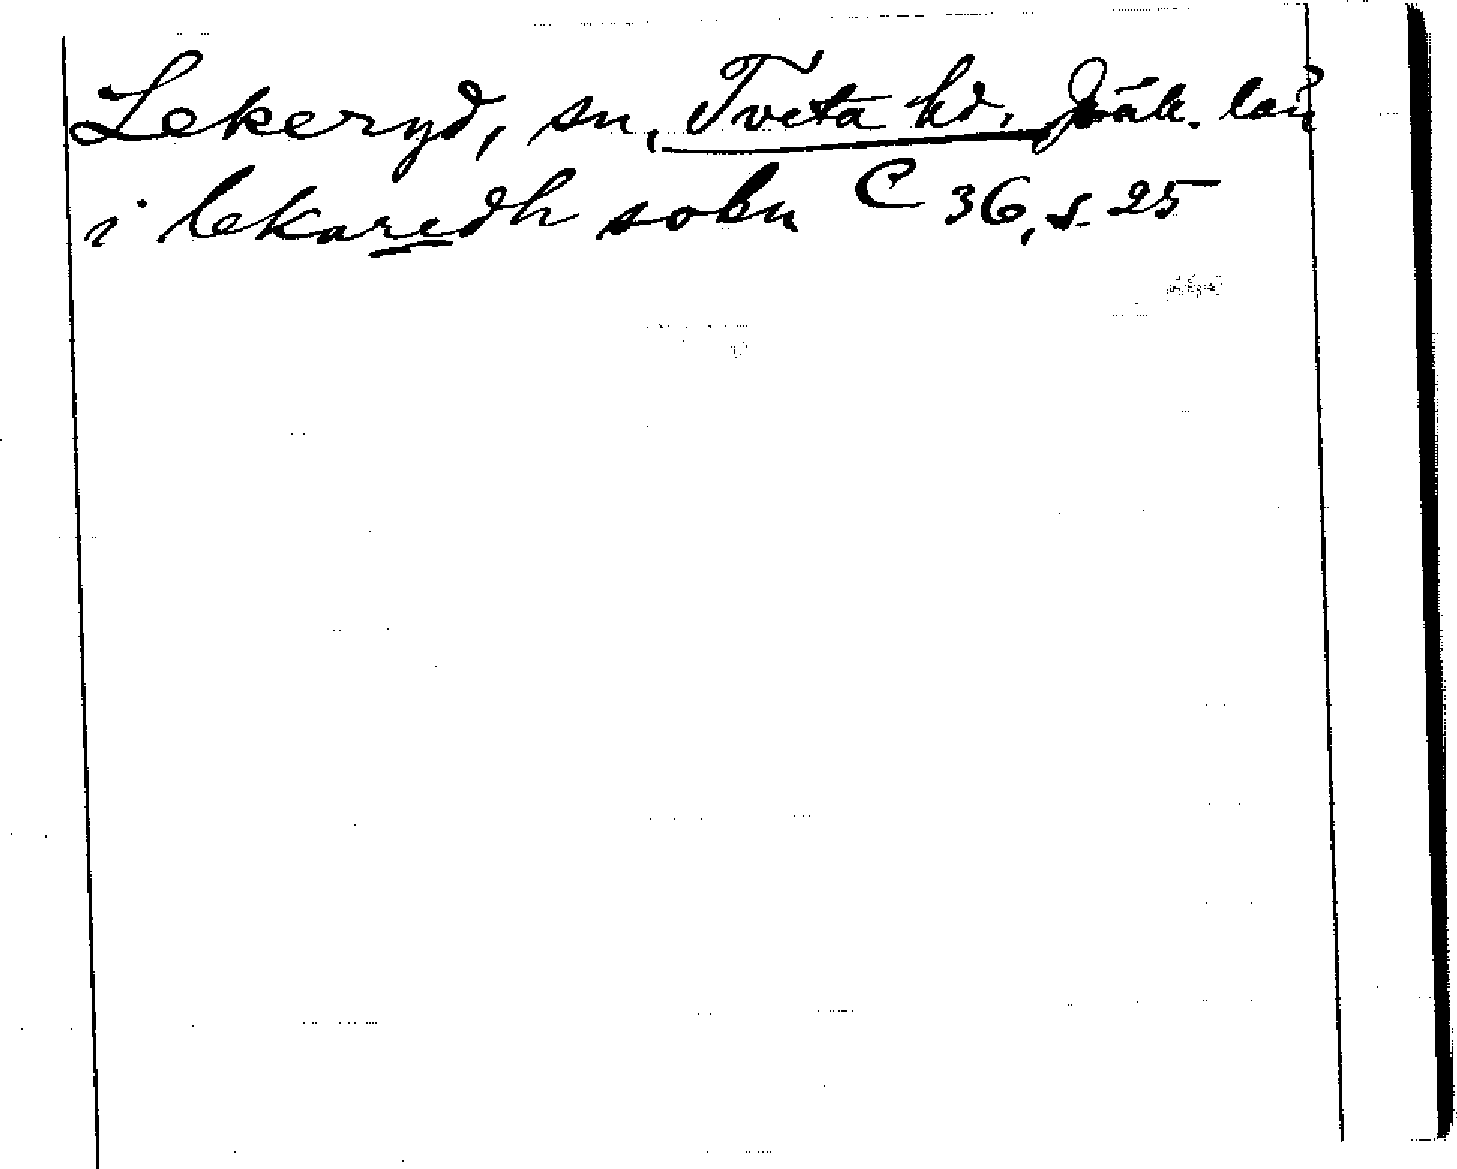 Lekeryd, sn, Tveta hd, Jönk. län
i lekaredh sokn C 36, s. 25